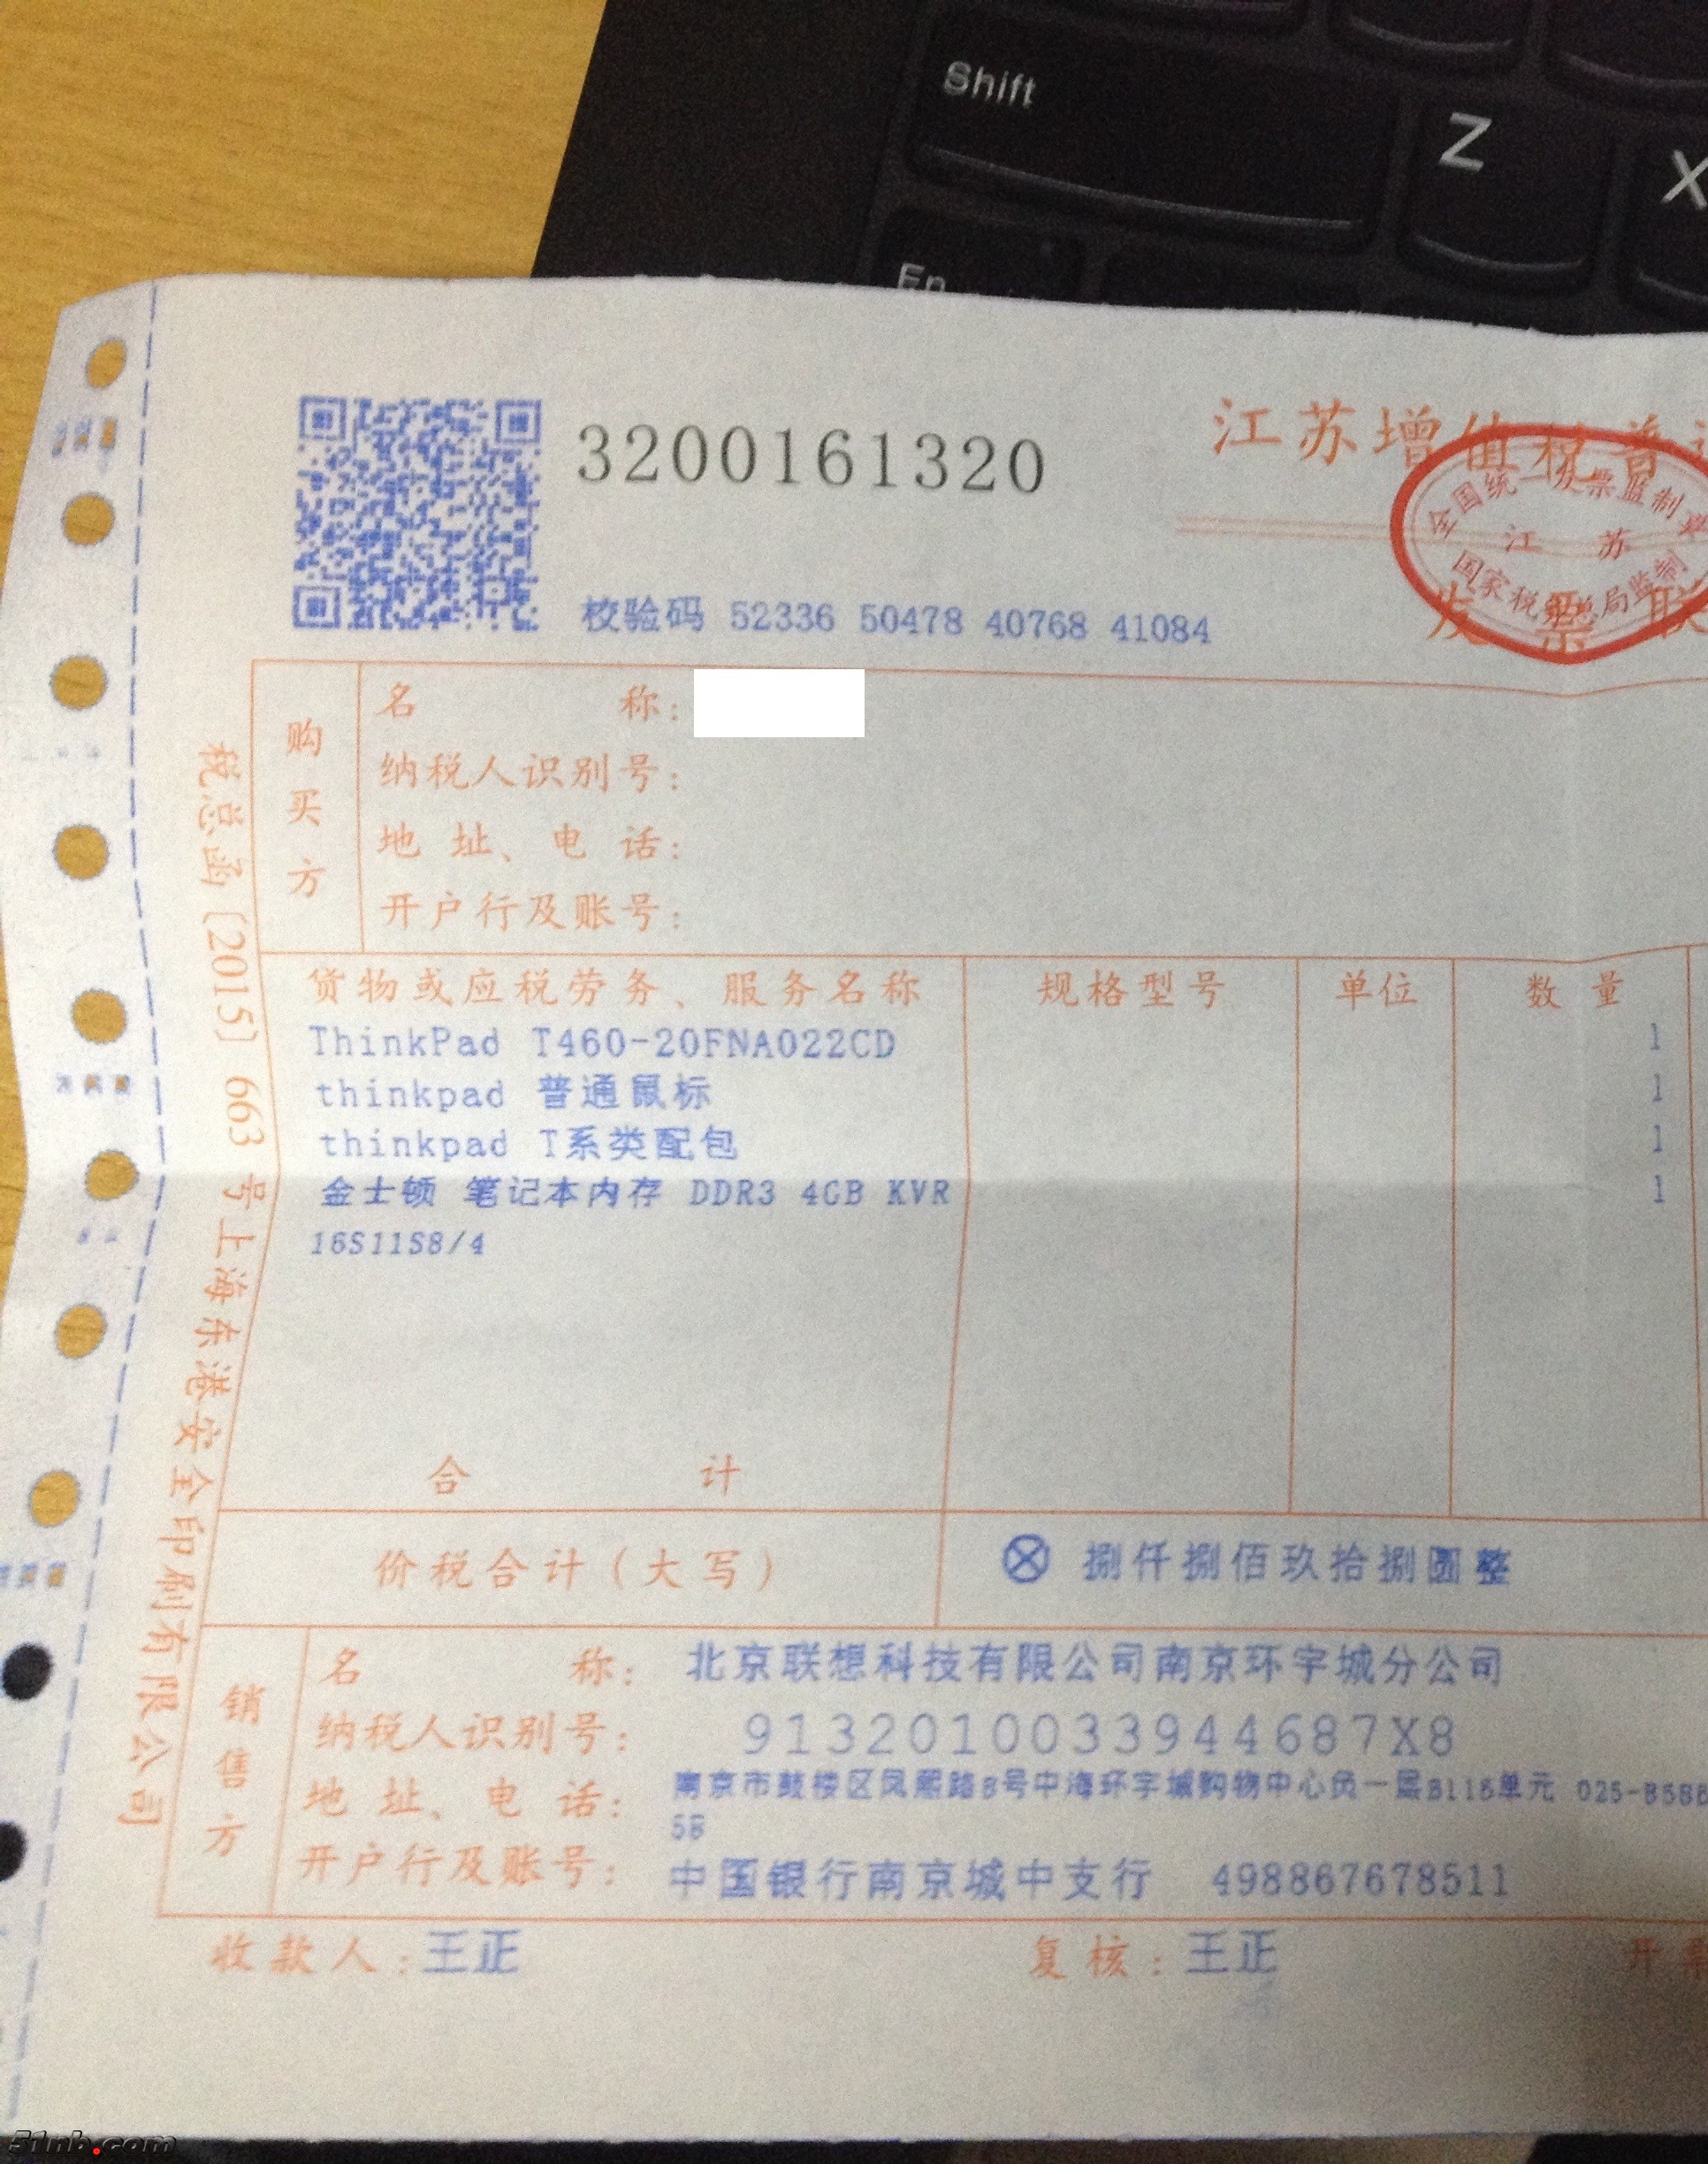 Shift
Z
X
En
3200161320
江苏增值税普通
全国统一发票监制章
江 苏
国家税务总局监制
发 票 联
校验码 52336 50478 40768 41084
购买方
名 称:
纳税人识别号:
地 址、电 话:
开户行及账号:
税总函〔2015〕663号上海东港安全印刷有限公司
货物或应税劳务、服务名称 规格型号 单位 数 量
ThinkPad T460-20FNA022CD 1
thinkpad 普通鼠标 1
thinkpad T系类配包 1
金士顿 笔记本内存 DDR3 4GB KVR 1
16S11S8/4
合 计
价税合计(大写) ⊗ 捌仟捌佰玖拾捌圆整
销售方
名 称: 北京联想科技有限公司南京环宇城分公司
纳税人识别号: 9132010033944687X8
地 址、电 话: 南京市鼓楼区凤熙路8号中海环宇城购物中心负一层B116单元 025-8586
58
开户行及账号: 中国银行南京城中支行 498867678511
收款人:王正 复核:王正 开票
51nb.com